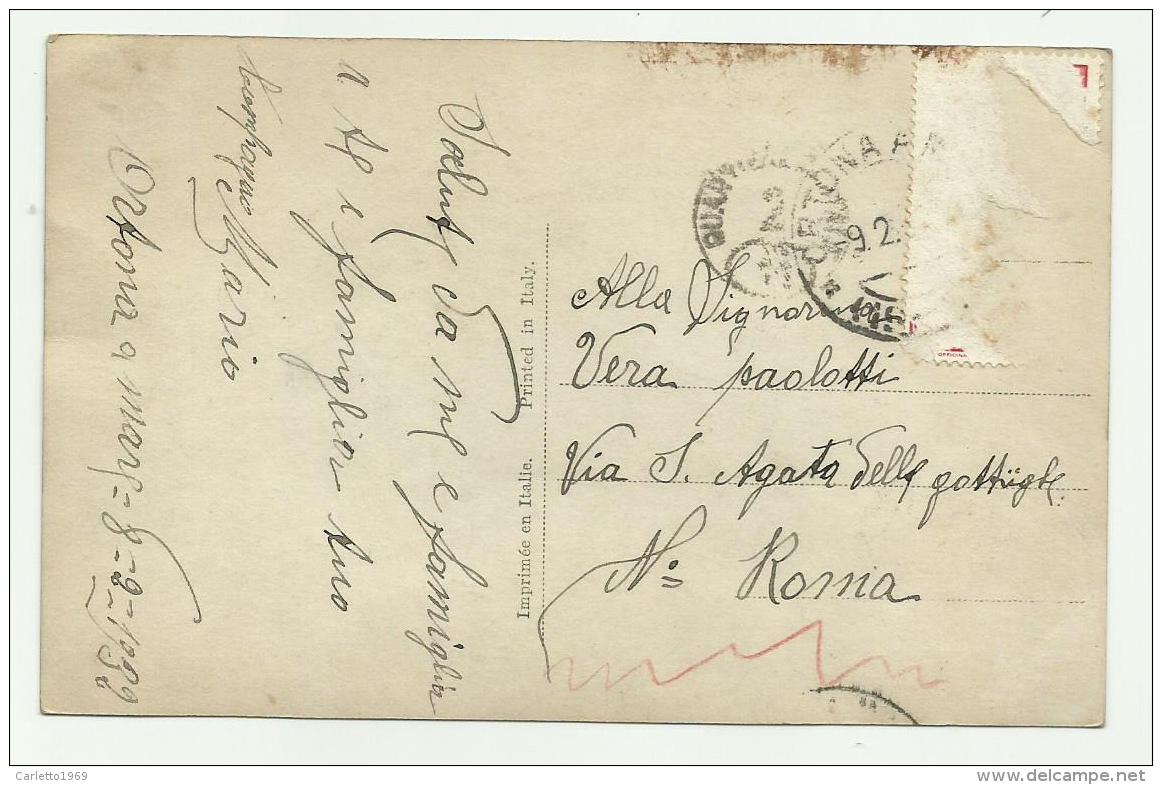 Saluti da me e famiglia
a te e famiglia tuo
Mario
Ortona a mare = 8 = 2 =
Imprimée en Italie. Printed in Italy.
Alla Signorina
Vera paolotti
Via S. Agata delle
N= Roma
ORTONA A MA
9.2.
OFFICINA
Carletto1969
www.delcampe.net